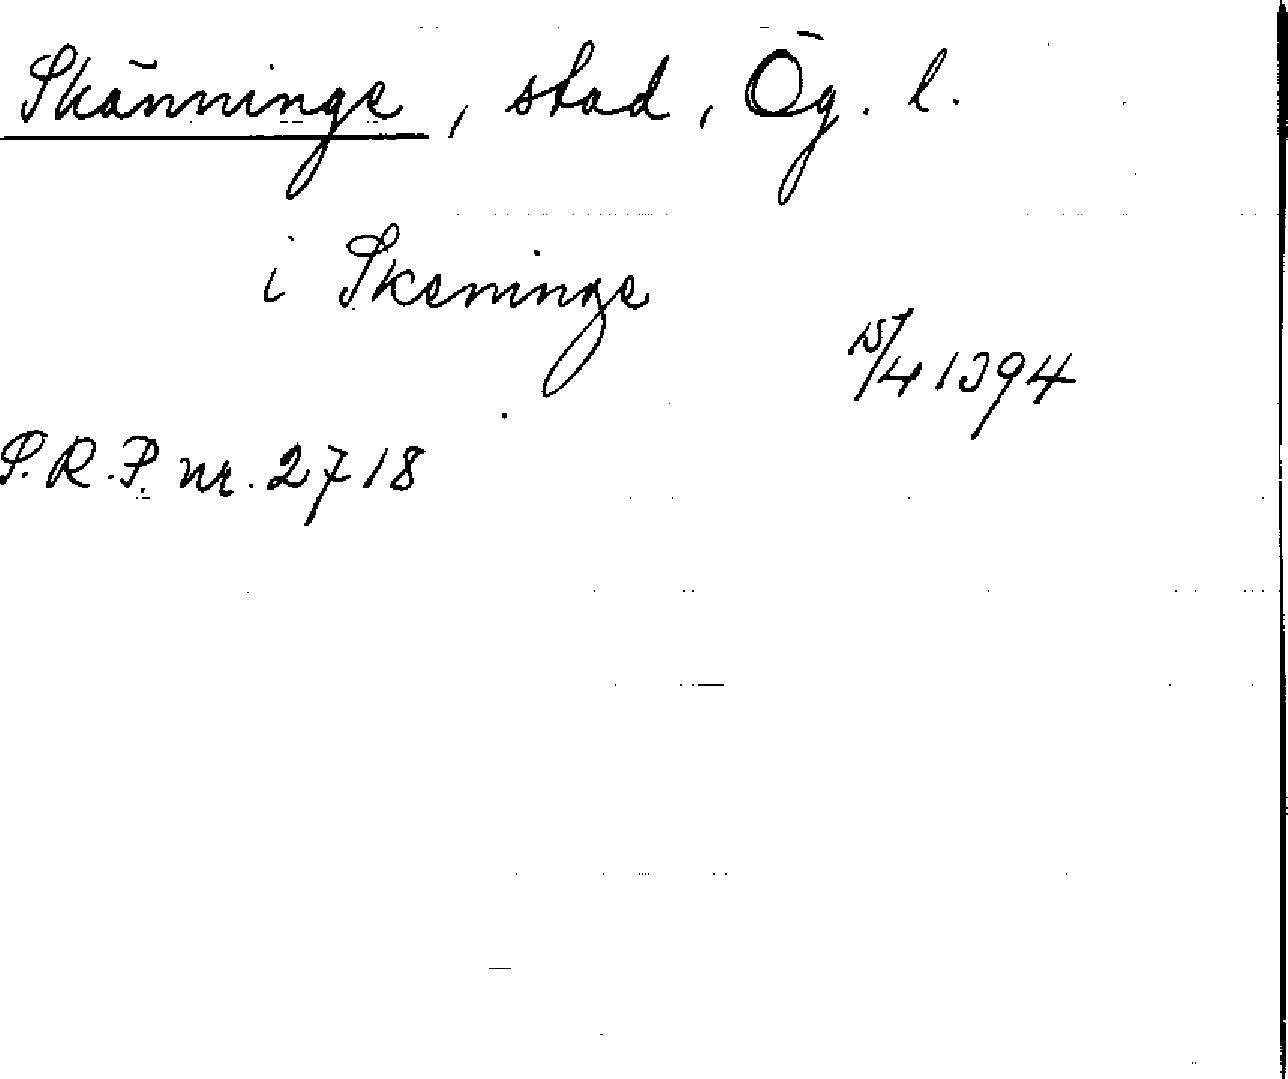 Skänninge, stad, Ög. l.
i Skeninge
15/4 1394
S.R.P. nr. 2718